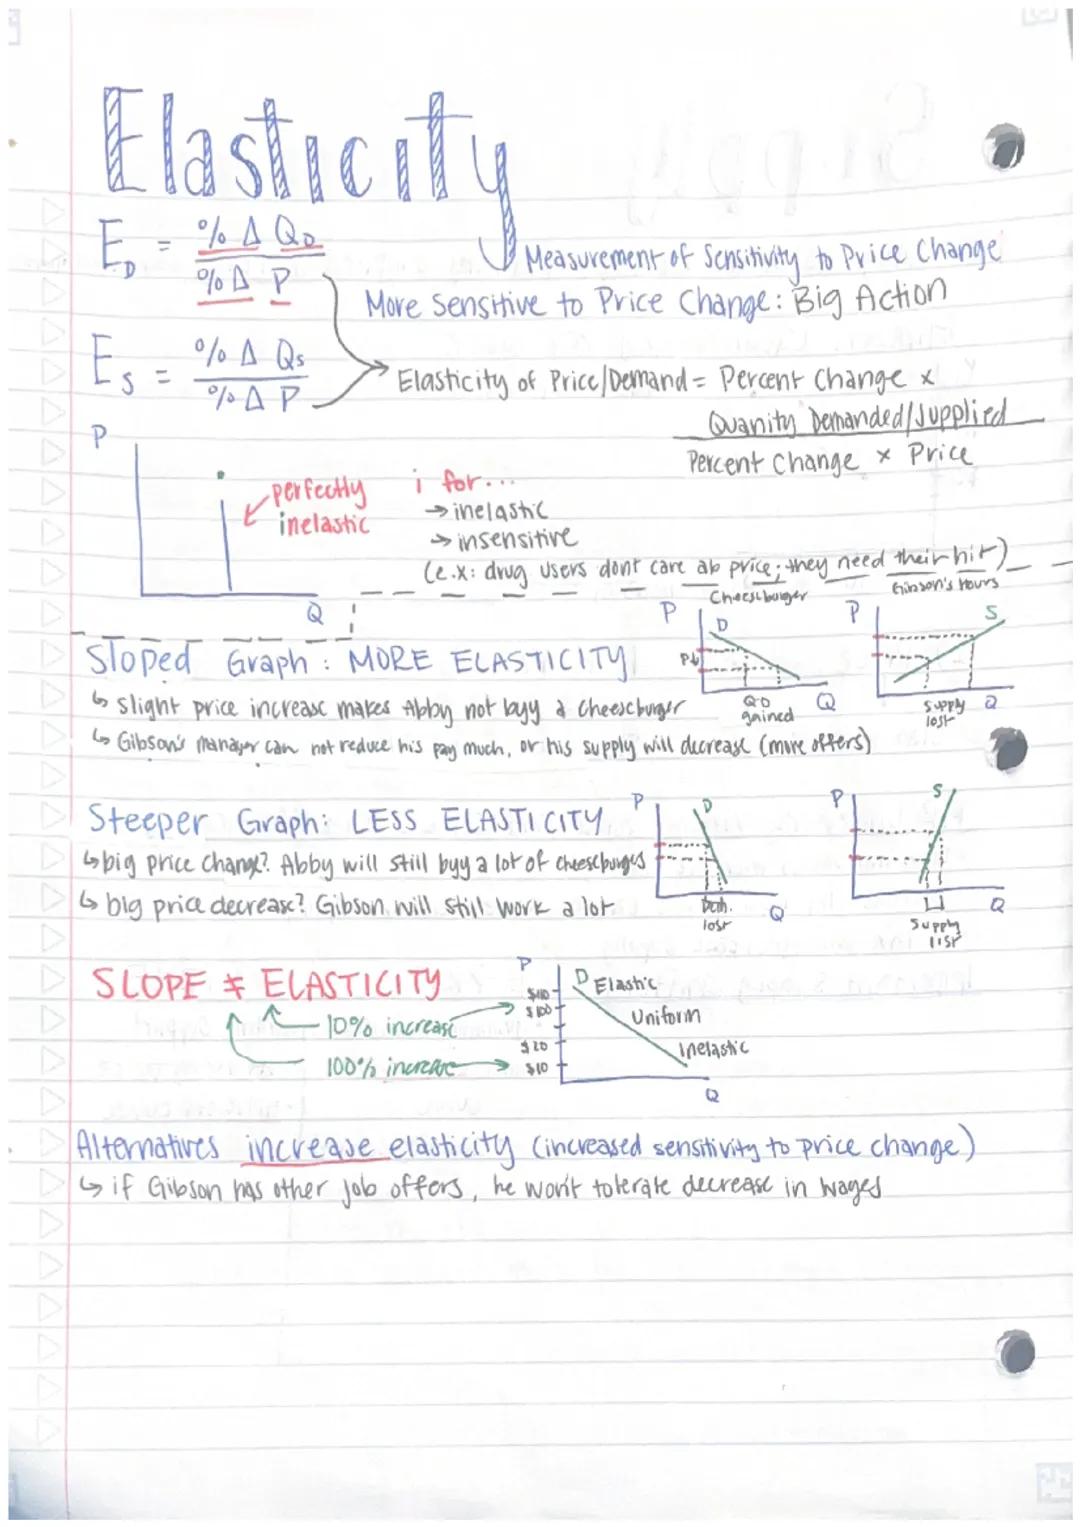 Elasticity
E_D = % Δ Q_D / % Δ P
Measurement of Sensitivity to Price Change
More Sensitive to Price Change: Big Action
E_S = % Δ Qs / % Δ P
Elasticity of Price/Demand = Percent Change ×
Quanity Demanded/Supplied
Percent Change × Price
P
perfectly
inelastic
Q
i for...
→ inelastic
→ insensitive
(e.x: drug users dont care ab price; they need their hit)
Cheeseburger
P
D
P↓
QD
gained
Q
Gibson's Hours
P
S
supply
lost
Q
Sloped Graph: MORE ELASTICITY
↳ slight price increase makes Abby not buyy a cheeseburger
↳ Gibson's manager can not reduce his pay much, or his supply will decrease (more offers)
Steeper Graph: LESS ELASTICITY
↳ big price change? Abby will still buyy a lot of cheeseburges
↳ big price decrease? Gibson will still work a lot
P
D
lost
Q
P
S
supply
Q
SLOPE ≠ ELASTICITY
10% increase
100% increase
P
$110
$100
$20
$10
D Elastic
Uniform
Inelastic
Q
Alternatives increase elasticity (increased sensitivity to price change)
↳ if Gibson has other job offers, he won't tolerate decrease in wages